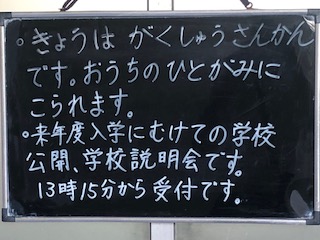 。きょうは がくしゅうさんかん
です。おうちのひとがみに
こられます。
。来年度入学にむけての学校
公開、学校説明会です。
13時15分から受付です。